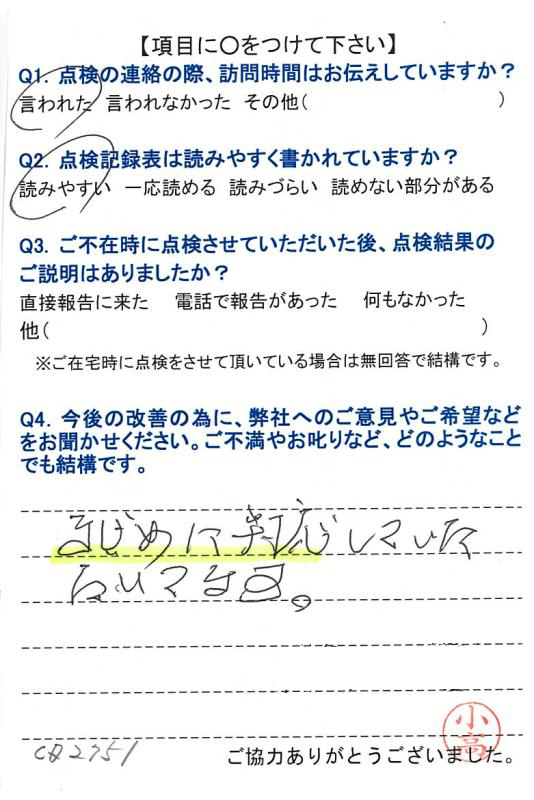 【項目に〇をつけて下さい】
Q1. 点検の連絡の際、訪問時間はお伝えしていますか？
言われた 言われなかった その他( )
Q2. 点検記録表は読みやすく書かれていますか？
読みやすい 一応読める 読みづらい 読めない部分がある
Q3. ご不在時に点検させていただいた後、点検結果の
ご説明はありましたか？
直接報告に来た 電話で報告があった 何もなかった
他( )
※ご在宅時に点検をさせて頂いている場合は無回答で結構です。
Q4. 今後の改善の為に、弊社へのご意見やご希望など
をお聞かせください。ご不満やお叱りなど、どのようなこと
でも結構です。
まじめに対応していた
だいてます。
小高
2751
ご協力ありがとうございました。